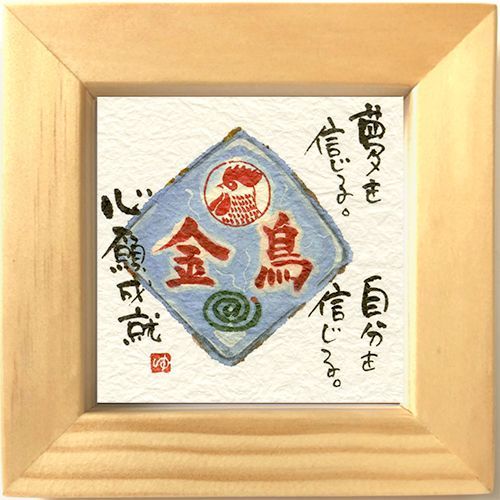 夢を
信じる。
自分を
信じる。
金鳥
心願成就